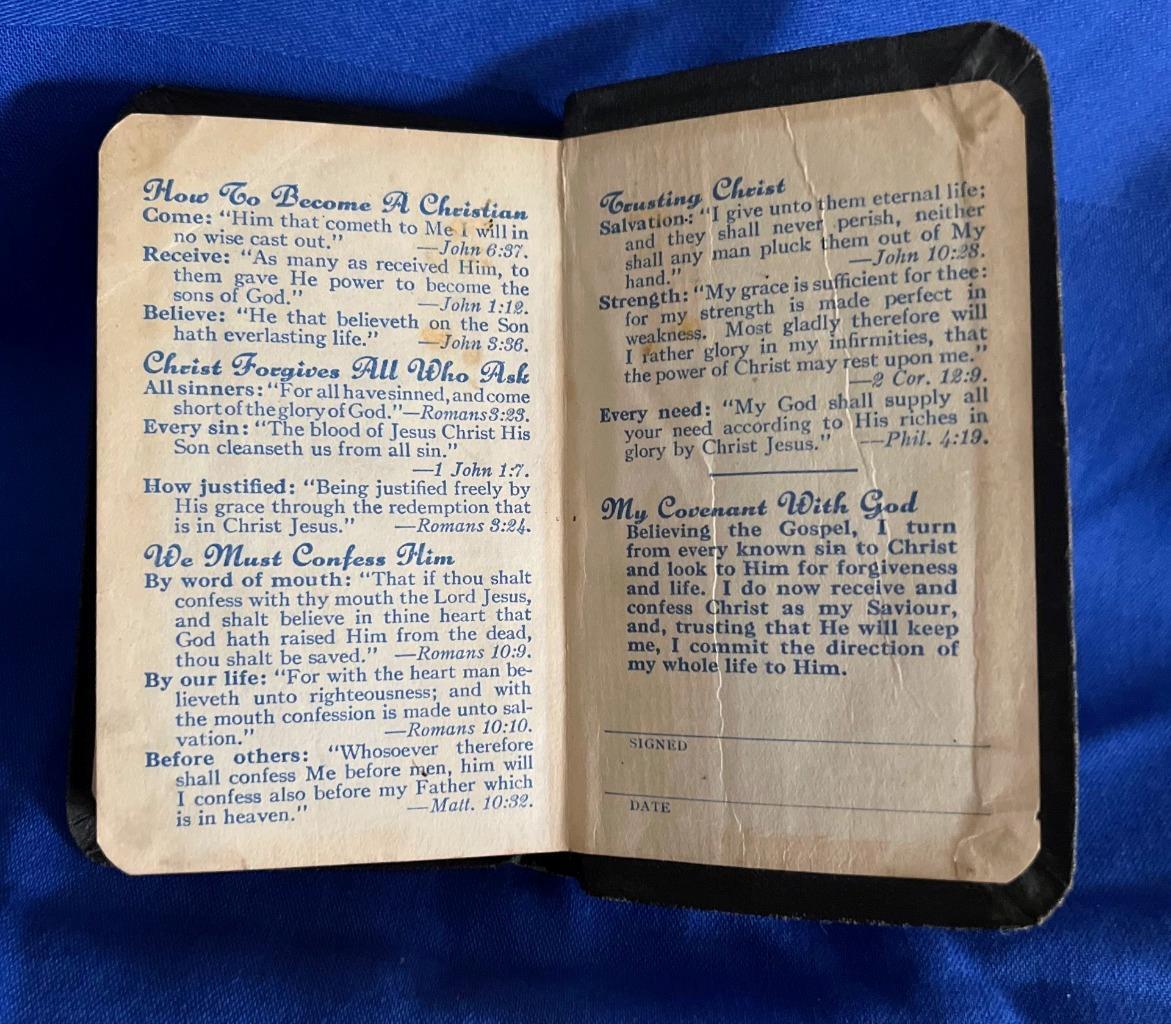 How To Become A Christian
Come: "Him that cometh to Me I will in
no wise cast out." —John 6:37.
Receive: "As many as received Him, to
them gave He power to become the
sons of God." —John 1:12.
Believe: "He that believeth on the Son
hath everlasting life." —John 3:36.
Christ Forgives All Who Ask
All sinners: "For all have sinned, and come
short of the glory of God."—Romans 3:23.
Every sin: "The blood of Jesus Christ His
Son cleanseth us from all sin."
—1 John 1:7.
How justified: "Being justified freely by
His grace through the redemption that
is in Christ Jesus." —Romans 3:24.
We Must Confess Him
By word of mouth: "That if thou shalt
confess with thy mouth the Lord Jesus,
and shalt believe in thine heart that
God hath raised Him from the dead,
thou shalt be saved." —Romans 10:9.
By our life: "For with the heart man be-
lieveth unto righteousness; and with
the mouth confession is made unto sal-
vation." —Romans 10:10.
Before others: "Whosoever therefore
shall confess Me before men, him will
I confess also before my Father which
is in heaven." —Matt. 10:32.
Trusting Christ
Salvation: "I give unto them eternal life;
and they shall never perish, neither
shall any man pluck them out of My
hand." —John 10:28.
Strength: "My grace is sufficient for thee:
for my strength is made perfect in
weakness. Most gladly therefore will
I rather glory in my infirmities, that
the power of Christ may rest upon me."
—2 Cor. 12:9.
Every need: "My God shall supply all
your need according to His riches in
glory by Christ Jesus." —Phil. 4:19.
My Covenant With God
Believing the Gospel, I turn
from every known sin to Christ
and look to Him for forgiveness
and life. I do now receive and
confess Christ as my Saviour,
and, trusting that He will keep
me, I commit the direction of
my whole life to Him.
SIGNED
DATE